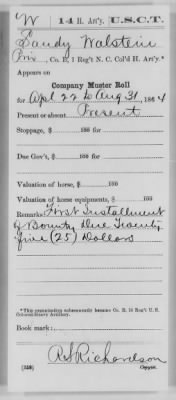 W 14 H. Art'y. U.S.C.T.
Sandy Walstein
Priv, Co. E, 1 Reg't N. C. Col'd H. Art'y.*
Appears on
Company Muster Roll
for Apl 22 to Aug 31, 1864
Present or absent Present
Stoppage, $ 100 for
Due Gov't, $ 100 for
Valuation of horse, $ 100
Valuation of horse equipments, $ 100
Remarks: First Installment
of Bounty Due Twenty
five (25) Dollars
*This organization subsequently became Co. E, 14 Reg't U. S.
Colored Heavy Artillery.
Book mark:
R S Richardson
(358) Copyist.